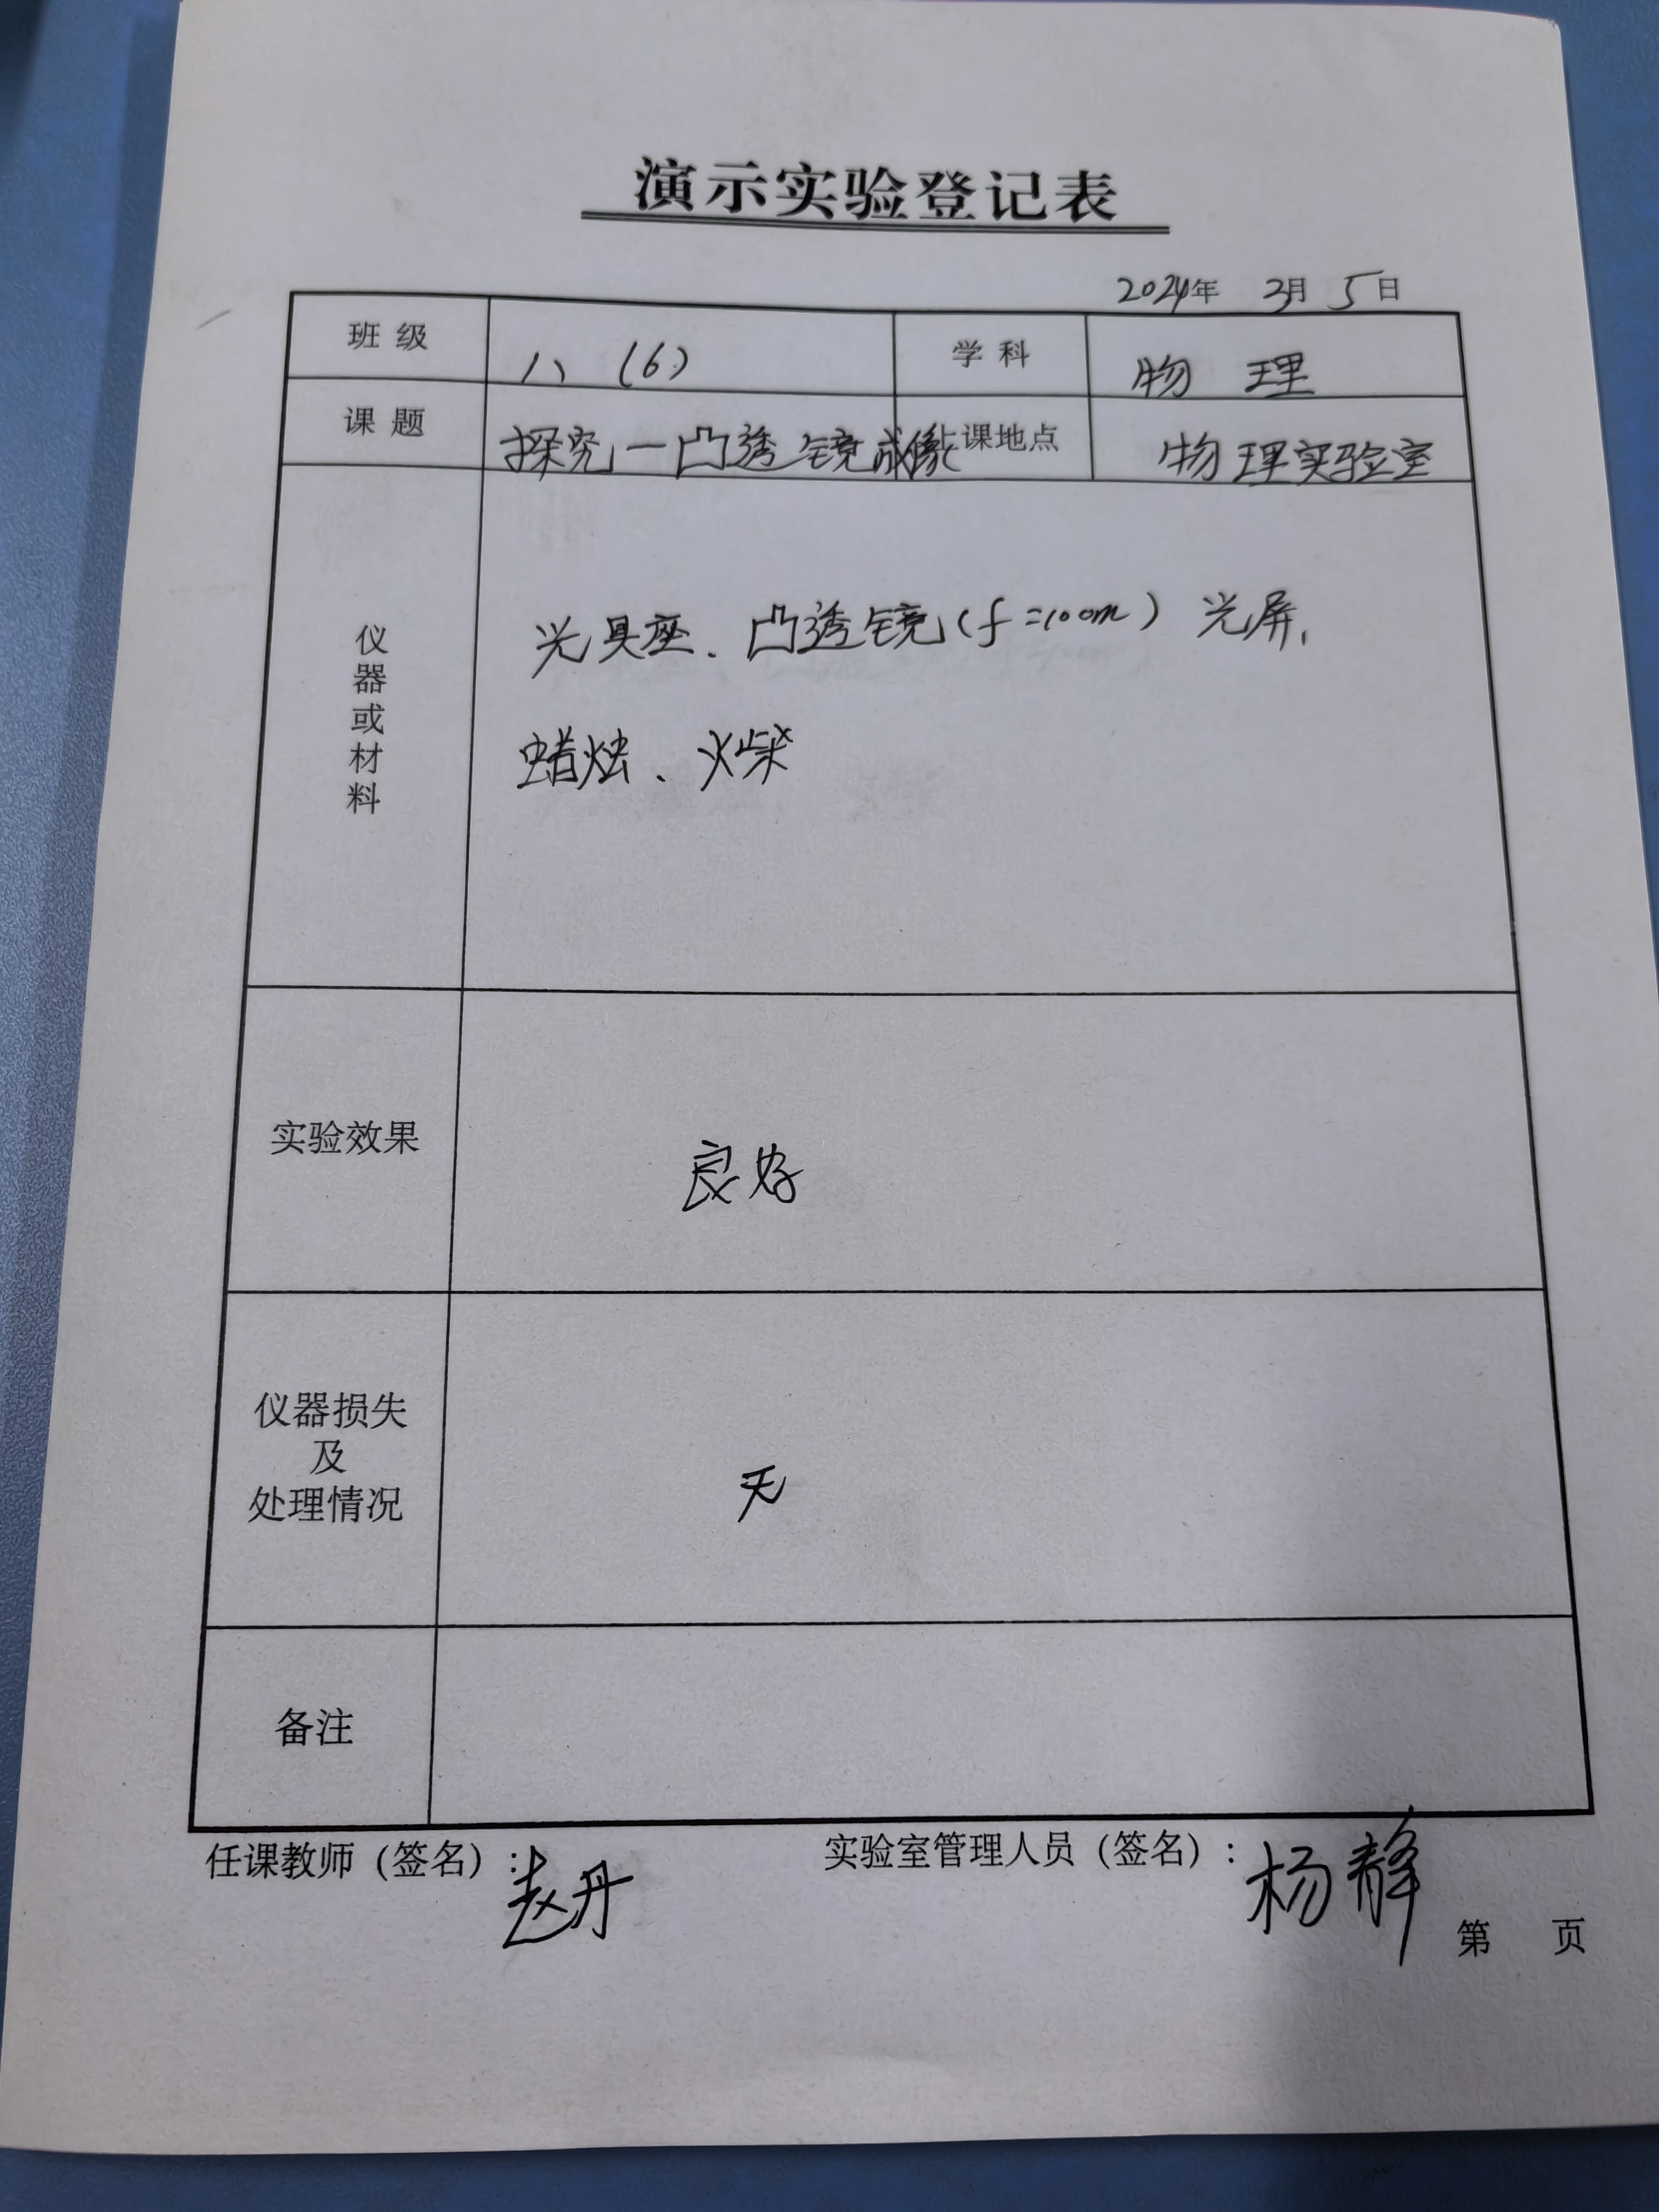 演示实验登记表
2024年 3月 5日
班级 八、(6) 学科 物理
课题 探究一凸透镜成像 上课地点 物理实验室
仪器或材料
光具座、凸透镜(f=10cm) 光屏、
蜡烛、火柴
实验效果 良好
仪器损失
及
处理情况
无
备注
任课教师(签名):赵丹 实验室管理人员(签名):杨静
第 页